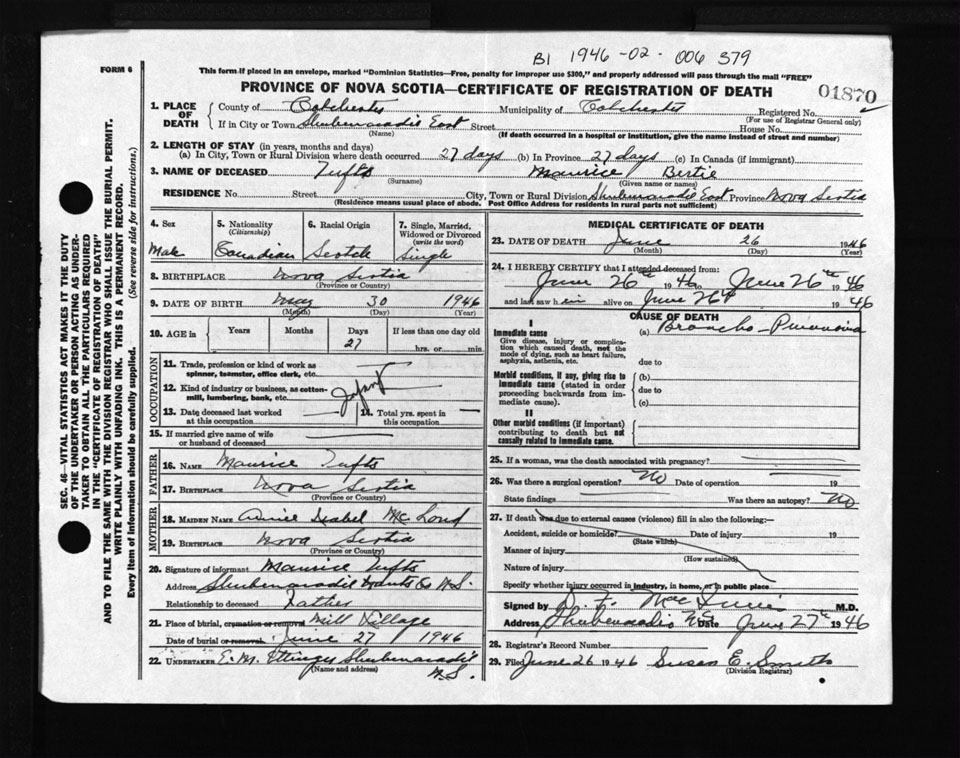 B1 1946-02-006379
FORM 6
This form if placed in an envelope, marked "Dominion Statistics—Free, penalty for improper use $300," and properly addressed will pass through the mail "FREE"
PROVINCE OF NOVA SCOTIA—CERTIFICATE OF REGISTRATION OF DEATH
01870
1. PLACE OF DEATH
County of Colchester Municipality of Colchester Registered No.
(For use of Registrar General only)
If in City or Town Shubenacadie East Street House No.
(Name) (If death occurred in a hospital or institution, give the name instead of street and number)
2. LENGTH OF STAY (in years, months and days)
(a) In City, Town or Rural Division where death occurred 27 days (b) In Province 27 days (c) In Canada (if immigrant)
3. NAME OF DECEASED Tufts Maurice Bertie
(Surname) (Given name or names)
RESIDENCE No. Street City, Town or Rural Division Shubenacadie East Province Nova Scotia
(Residence means usual place of abode. Post Office Address for residents in rural parts not sufficient)
SEC. 46—VITAL STATISTICS ACT MAKES IT THE DUTY
OF THE UNDERTAKER OR PERSON ACTING AS UNDER-
TAKER TO OBTAIN ALL THE PARTICULARS REQUIRED
IN THE "CERTIFICATE OF REGISTRATION OF DEATH"
AND TO FILE THE SAME WITH THE DIVISION REGISTRAR WHO SHALL ISSUE THE BURIAL PERMIT.
WRITE PLAINLY WITH UNFADING INK. THIS IS A PERMANENT RECORD.
Every item of Information should be carefully supplied. (See reverse side for instructions.)
4. Sex
Male
5. Nationality
(Citizenship)
Canadian
6. Racial Origin
Scotch
7. Single, Married,
Widowed or Divorced
(write the word)
Single
8. BIRTHPLACE Nova Scotia
(Province or Country)
9. DATE OF BIRTH May 30 1946
(Month) (Day) (Year)
10. AGE in Years Months Days If less than one day old
27 hrs. or min.
OCCUPATION
11. Trade, profession or kind of work as
spinner, teamster, office clerk, etc.
12. Kind of industry or business, as cotton-
mill, lumbering, bank, etc. Infant
13. Date deceased last worked
at this occupation
14. Total yrs. spent in
this occupation
15. If married give name of wife
or husband of deceased
FATHER
16. NAME Maurice Tufts
17. BIRTHPLACE Nova Scotia
(Province or Country)
MOTHER
18. MAIDEN NAME Isabel
19. BIRTHPLACE Nova Scotia
(Province or Country)
20. Signature of informant Maurice Tufts
Address Shubenacadie Hants Co N.S.
Relationship to deceased Father
21. Place of burial, cremation or removal Mill Village
Date of burial or removal June 27 1946
22. UNDERTAKER E. M. Ettinger Shubenacadie
(Name and address) N.S.
MEDICAL CERTIFICATE OF DEATH
23. DATE OF DEATH June 26 1946
(Month) (Day) (Year)
24. I HEREBY CERTIFY that I attended deceased from:
June 26th 1946 to June 26th 1946
and last saw him alive on June 26th 1946
CAUSE OF DEATH
I
Immediate cause (a) Broncho-Pneumonia
Give disease, injury or complica-
tion which caused death, not the
mode of dying, such as heart failure,
asphyxia, asthenia, etc. due to
Morbid conditions, if any, giving rise to
immediate cause (stated in order
proceeding backwards from im-
mediate cause).
(b)
due to
(c)
II
Other morbid conditions (if important)
contributing to death but not
causally related to immediate cause.
25. If a woman, was the death associated with pregnancy?
26. Was there a surgical operation? No Date of operation 19
State findings Was there an autopsy? No
27. If death was due to external causes (violence) fill in also the following:—
Accident, suicide or homicide? Date of injury 19
(State which)
Manner of injury
(How sustained)
Nature of injury
Specify whether injury occurred in industry, in home, or in public place
Signed by D. F. M.D.
Address Shubenacadie NS Date June 27th 1946
28. Registrar's Record Number
29. Filed June 26 1946 Susan E. Smith
(Division Registrar)